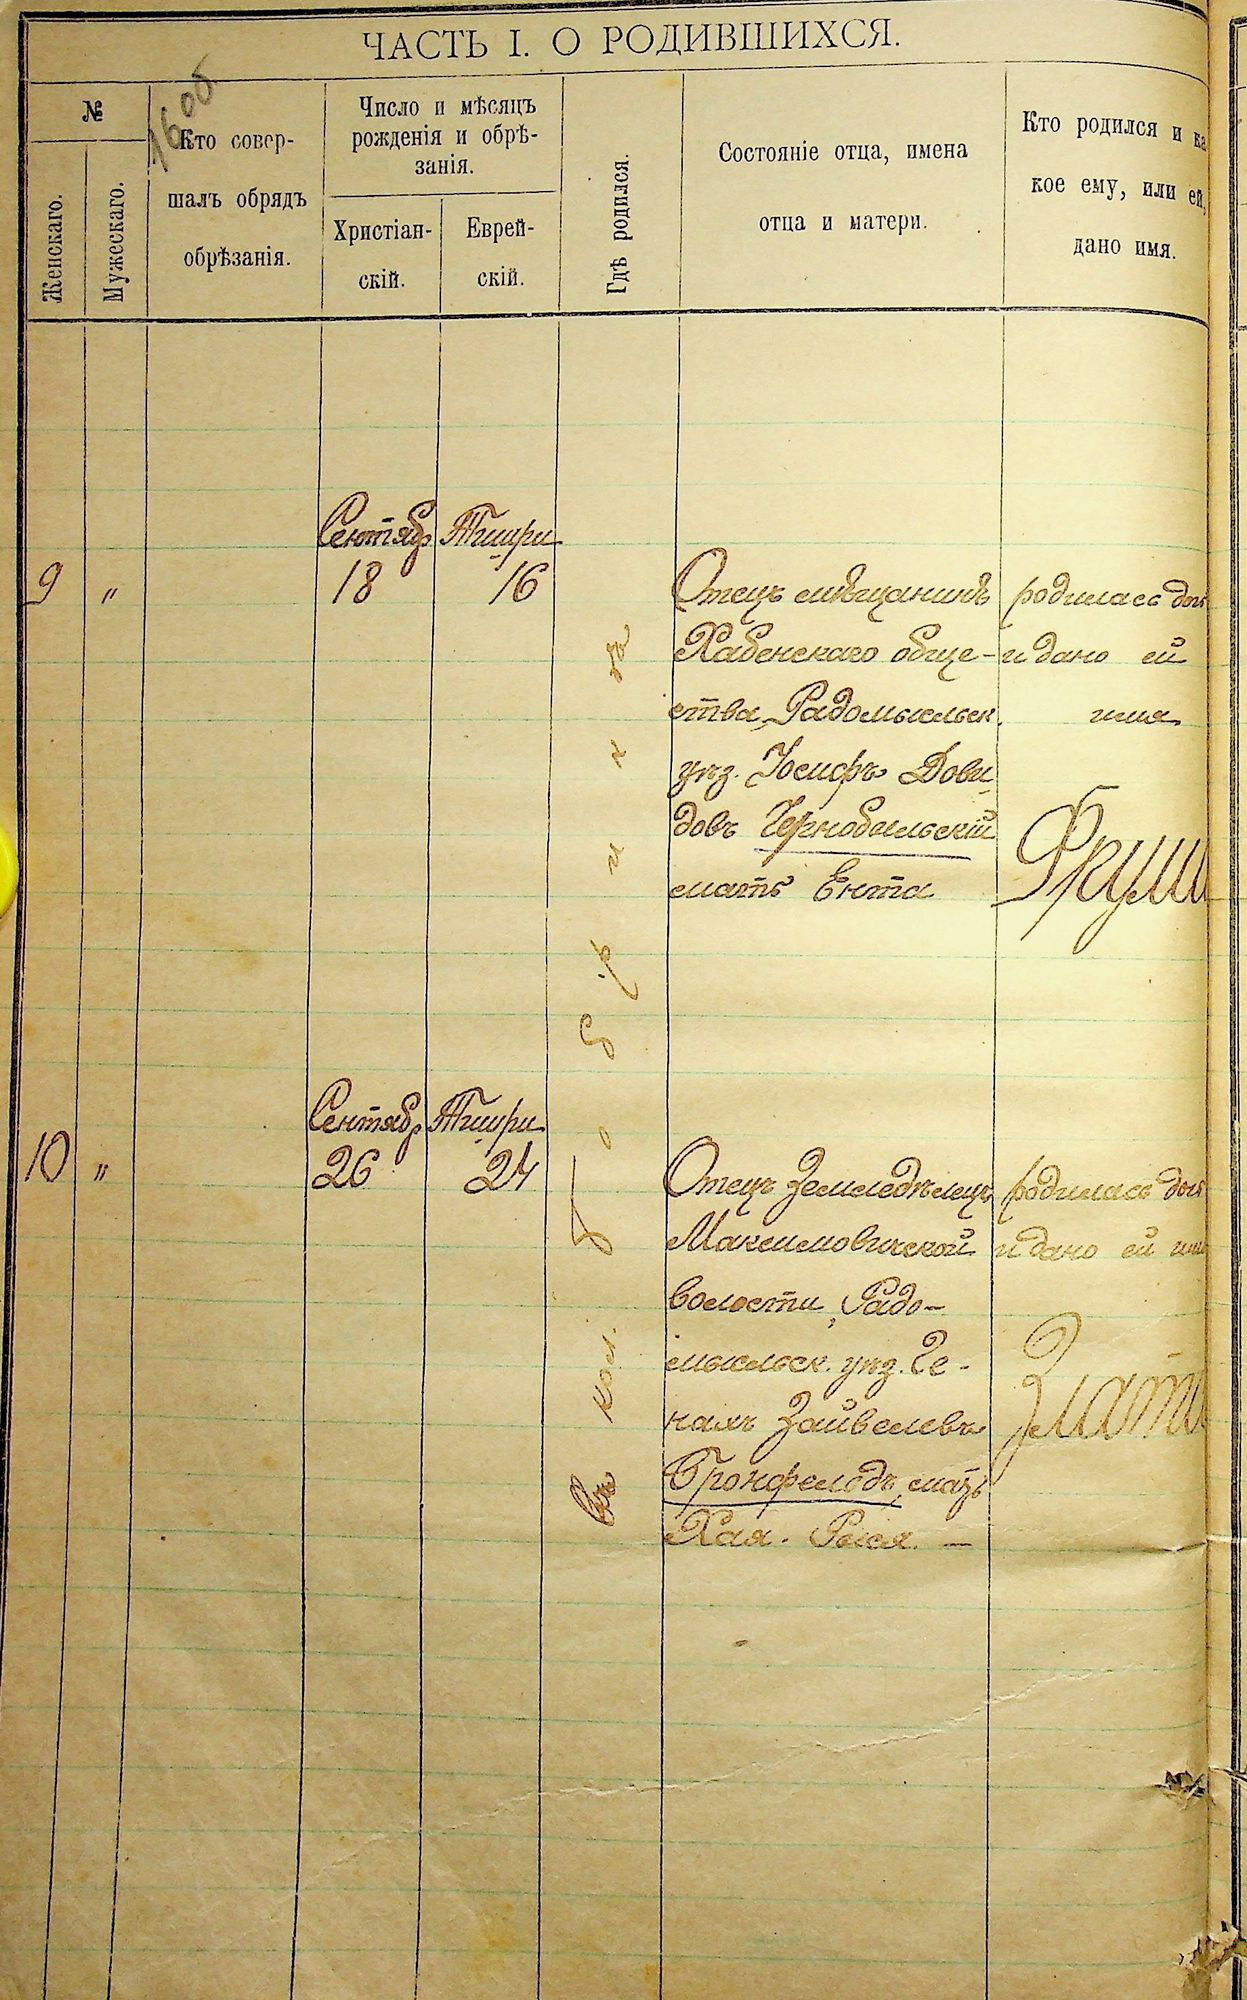 ЧАСТЬ I. О РОДИВШИХСЯ.
160об
№
Женскаго.
Мужескаго.
Кто совер-
шалъ обрядъ
обрѣзанія.
Число и мѣсяцъ
рожденія и обрѣ-
занія.
Христіан-
скій.
Еврей-
скій.
Гдѣ родился.
Состояніе отца, имена
отца и матери.
Кто родился и ка
кое ему, или ей,
дано имя.
9
"
Сентябр
18
Тишри
16
Отецъ мѣщанинъ
Хабенскаго обще-
ства, Радомысльск.
уѣз. Іосифъ Дови
довъ Чернобыльскій
мать Ента
родилась доч
и дано ей
имя
Фрум
10
"
Сентябр
26
Тишри
24
Отецъ Земледѣлецъ
Максимовичской
волости, Радо-
мысльск. уѣз. Ге-
нахъ Зайвелевъ
Гронфельдъ, мать
Хая. Рыся. -
родилась доч
и дано ей им
Злат
Въ кол.